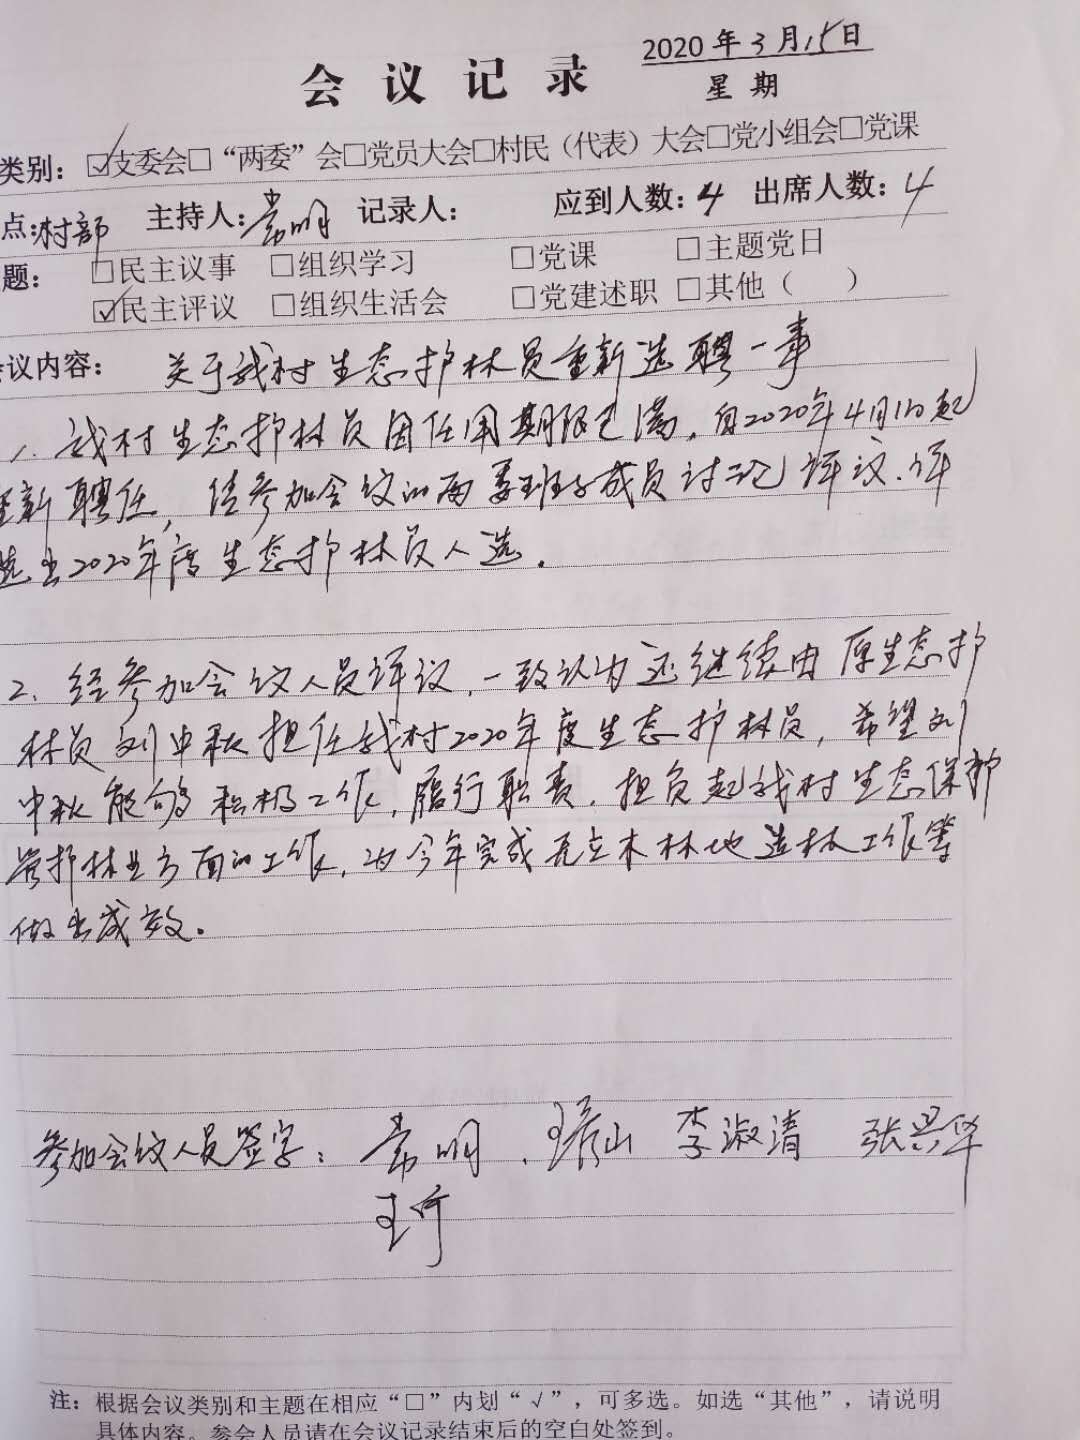 2020年3月15日
会议记录 星期
类别：☑支委会□“两委”会□党员大会□村民（代表）大会□党小组会□党课
点：村部 主持人：常明 记录人： 应到人数：4 出席人数：4
题： □民主议事 □组织学习 □党课 □主题党日
☑民主评议 □组织生活会 □党建述职 □其他（ ）
议内容： 关于我村生态护林员重新选聘一事
1. 我村生态护林员因任用期限已满，自2020年4月1日起
重新聘任，经参加会议的两委班子成员讨论评议，评
选出2020年度生态护林员人选。
2. 经参加会议人员评议，一致认为还继续由原生态护
林员刘中秋担任我村2020年度生态护林员，希望刘
中秋能够积极工作，履行职责，担负起我村生态保护
管护林业方面的工作，为今年完成无立木林地造林工作等
做出成效。
参加会议人员签字：常明、李淑清 张兴华
注：根据会议类别和主题在相应“□”内划“√”，可多选。如选“其他”，请说明
具体内容。参会人员请在会议记录结束后的空白处签到。